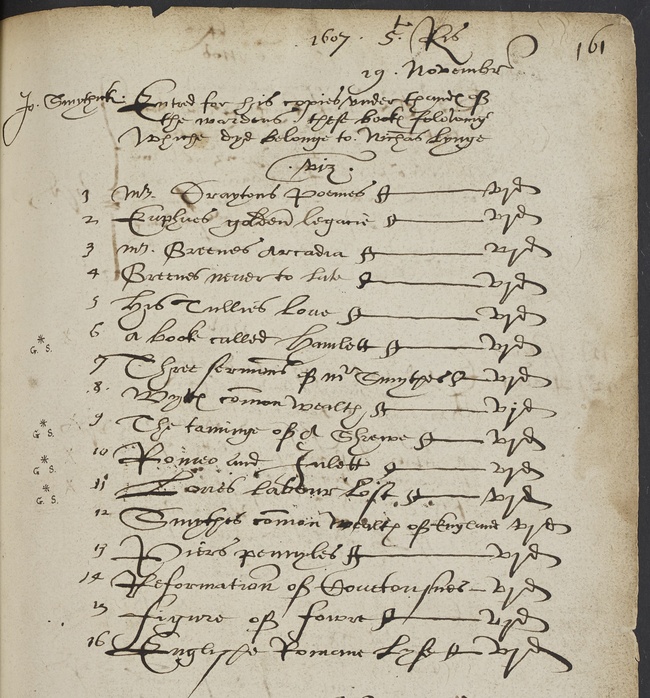 1607 . 5 . Rs 161
19 . Novembr
Jo. Smythick. Entred for his copies vnder thandes of
the wardens . these bookes folowing
Whiche dyd belonge to. Nicholas Lynge
. viz .
1 mr. Draytons Poemes vjd
2 Euphues golden legacie vjd
3 mr. Greenes Arcadia vjd
4 Greenes never to late vjd
5 His Tullies Love vjd
6 a booke called Hamlett vjd
* G. S.
7 Three sermons of mr Smythes vjd
8 common wealth vjd
9 The taminge of A Shrewe vjd
* G. S.
10 Romeo and Julett vjd
* G. S.
11 Loves Labour Lost vjd
* G. S.
12 Smythes common wealth of England vjd
13 Piers pennyles vjd
14 Reformation of Covetousnes vjd
15 figure of fowre vjd
16 Englishe Romane Lyfe vjd